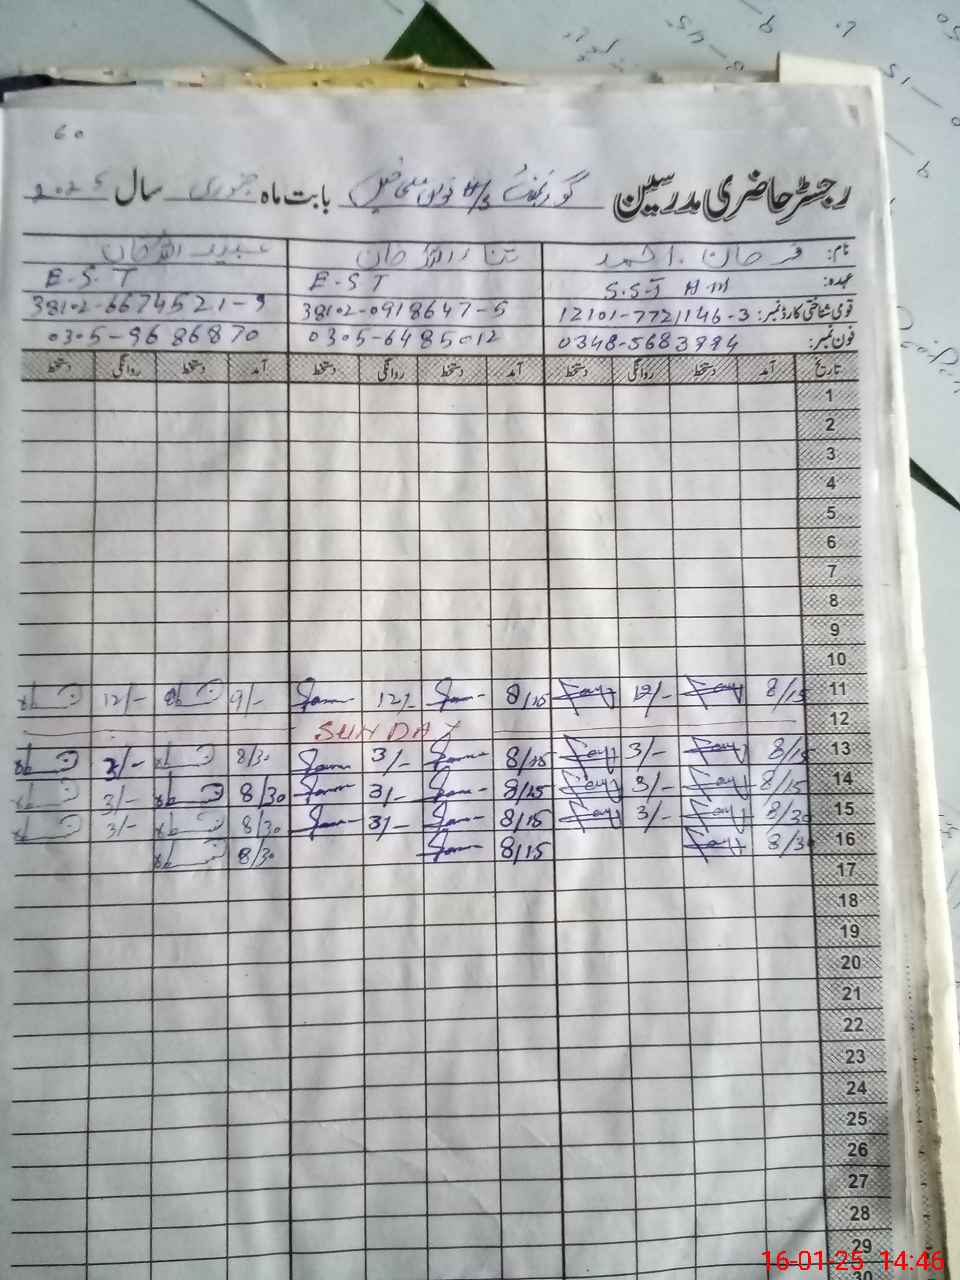 60
رجسٹر حاضری مدرسین گورنمنٹ H/S بابت ماہ جنوری سال 2025
نام: فرحان احمد ثناء اللہ خان عبید اللہ خان
عہدہ: S.S.T H.M E.S.T E.S.T
قومی شناختی کارڈ نمبر: 12101-7721146-3 38102-0918647-5 38102-6674521-9
فون نمبر: 0348-5683994 0305-6485012 0305-9686870
تاریخ آمد دستخط روانگی دستخط آمد دستخط روانگی دستخط آمد دستخط روانگی دستخط
1
2
3
4
5
6
7
8
9
10
11 8/15 12/- 8/15 12/- 9/- 12/-
12 SUNDAY
13 8/15 3/- 8/15 3/- 8/30 3/-
14 8/15 3/- 8/15 3/- 8/30 3/-
15 8/30 3/- 8/15 3/- 8/30 3/-
16 8/30 8/15 8/30
17
18
19
20
21
22
23
24
25
26
27
28
29
30
16-01-25 14:46